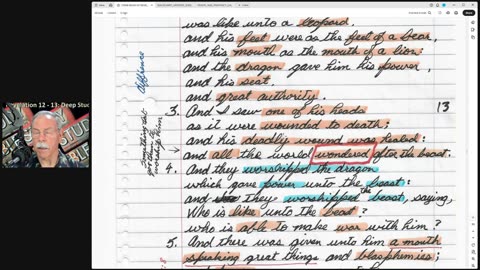 was like unto a leopard,
and his feet were as the feet of a bear,
and his mouth as the mouth of a lion:
and the dragon gave him his power,
and his seat,
and great authority.
difference
13
3. And I saw one of his heads
as it were wounded to death:
and his deadly wound was healed:
and all the world wondered after the beast.
4. And they worshipped the dragon
which gave power unto the beast:
and they worshipped the beast, saying,
Who is like unto the beast?
who is able to make war with him?
5. And there was given unto him a mouth
speaking great things and blasphemies;
Something that
worship him
velation 12 - 13: Deep Stud